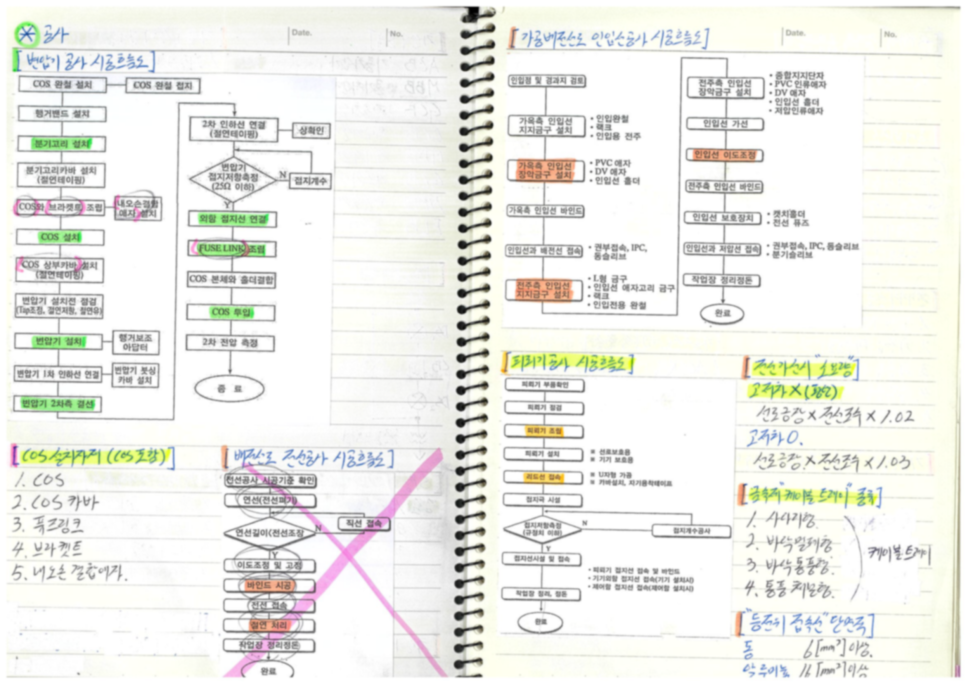 공사
Date.
No.
[변압기 공사 시공흐름도]
COS 완철 설치
COS 완철 접지
행거밴드 설치
분기고리 설치
분기고리카바 설치
(절연테이핑)
COS와 브라켓트 조립
내오손결합
애자 설치
COS 설치
COS 상부카바 설치
(절연테이핑)
변압기 설치전 점검
(Tap조정, 절연저항, 절연유)
변압기 설치
행거보조
아답터
변압기 1차 인하선 연결
변압기 붓싱
카바 설치
변압기 2차측 결선
2차 인하선 연결
(절연테이핑)
상확인
변압기
접지저항측정
(25Ω 이하)
N
접지개수
Y
외함 접지선 연결
FUSE LINK 조립
COS 본체와 홀더결합
COS 투입
2차 전압 측정
종 료
[COS 설치자재 (COS 포함)]
1. COS
2. COS 카바
3. 퓨즈링크
4. 브라켓트
5. 내오손 결합애자.
[배전선로 전선공사 시공흐름도]
전선공사 시공기준 확인
연선(전선펴기)
연선길이(전선조장)
N
직선 접속
Y
이도조정 및 고정
바인드 시공
전선 접속
절연 처리
작업장 정리정돈
완료
[가공배전선로 인입선공사 시공흐름도]
Date.
No.
인입점 및 경과지 검토
가옥측 인입선
지지금구 설치
• 인입완철
• 랙크
• 인입용 전주
가옥측 인입선
장악금구 설치
• PVC 애자
• DV 애자
• 인입선 홀더
가옥측 인입선 바인드
인입선과 배전선 접속
• 권부접속, IPC,
동슬리브
전주측 인입선
지지금구 설치
• L형 금구
• 인입선 애자고리 금구
• 랙크
• 인입전용 완철
전주측 인입선
장악금구 설치
• 종합지지단자
• PVC 인류애자
• DV 애자
• 인입선 홀더
• 저압인류애자
인입선 가선
인입선 이도조정
전주측 인입선 바인드
인입선 보호장치
• 캣치홀더
• 전선 퓨즈
인입선과 저압선 접속
• 권부접속, IPC, 동슬리브
• 분기슬리브
작업장 정리정돈
완료
[피뢰기공사 시공흐름도]
피뢰기 부품확인
피뢰기 점검
피뢰기 조립
피뢰기 설치
※ 선로보호용
※ 기기 보호용
리드선 접속
※ U자형 가공
※ 카바설치, 자기융착테이프
접지극 시설
접지저항측정
(규정치 이하)
N
접지개수공사
Y
접지선시설 및 접속
• 피뢰기 접지선 접속 및 바인드
• 기기외함 접지선 접속(기기 설치시)
• 제어함 접지선 접속(제어함 설치시)
작업장 정리, 정돈
완료
[전선가선시 "소요량"]
고저차 X (평탄)
선로긍장 × 전선조수 × 1.02
고저차 O.
선로긍장 × 전선조수 × 1.03
[금속제 "케이블 트레이" 종류]
1. 사다리형.
2. 바닥밀폐형
3. 바닥통풍형.
4. 통풍 채널형.
케이블트레이
["등전위 접속선" 단면적]
동 6[mm²]이상.
알루미늄 16[mm²]이상